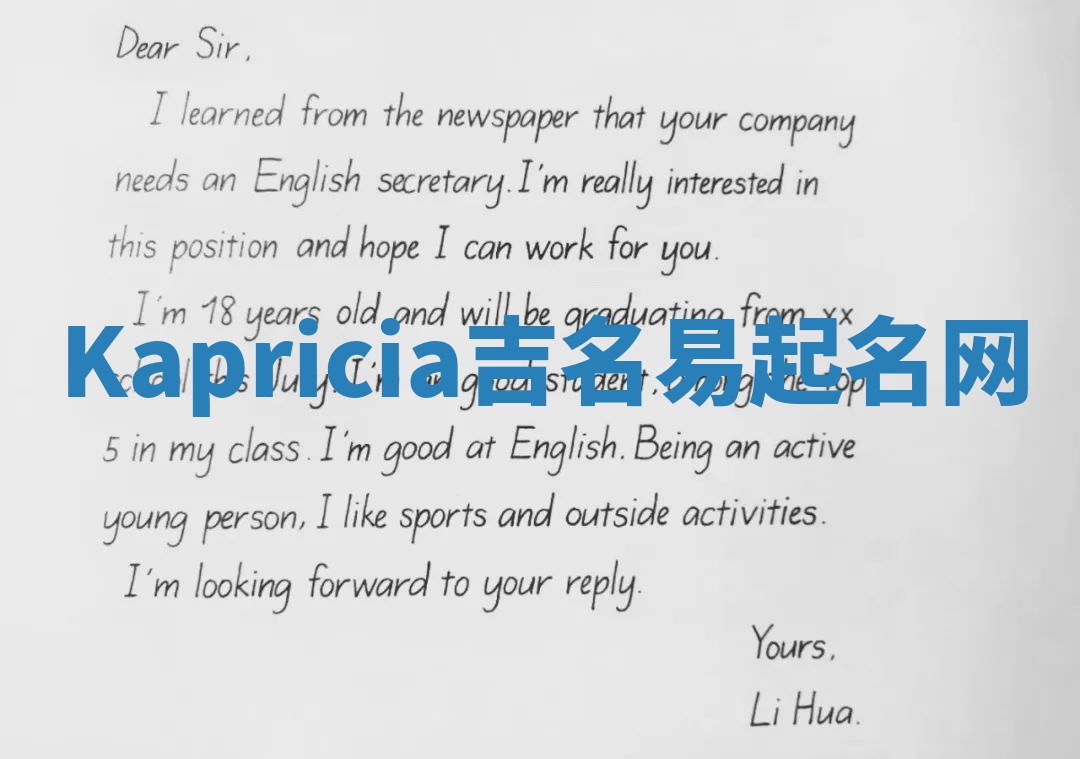 Dear Sir,
I learned from the newspaper that your company
needs an English secretary. I'm really interested in
this position and hope I can work for you.
I'm 18 years old and will be graduating from xx
Kapricia吉名易起名网
school this July. I'm a good student, among the top
5 in my class. I'm good at English. Being an active
young person, I like sports and outside activities.
I'm looking forward to your reply.
Yours,
Li Hua.